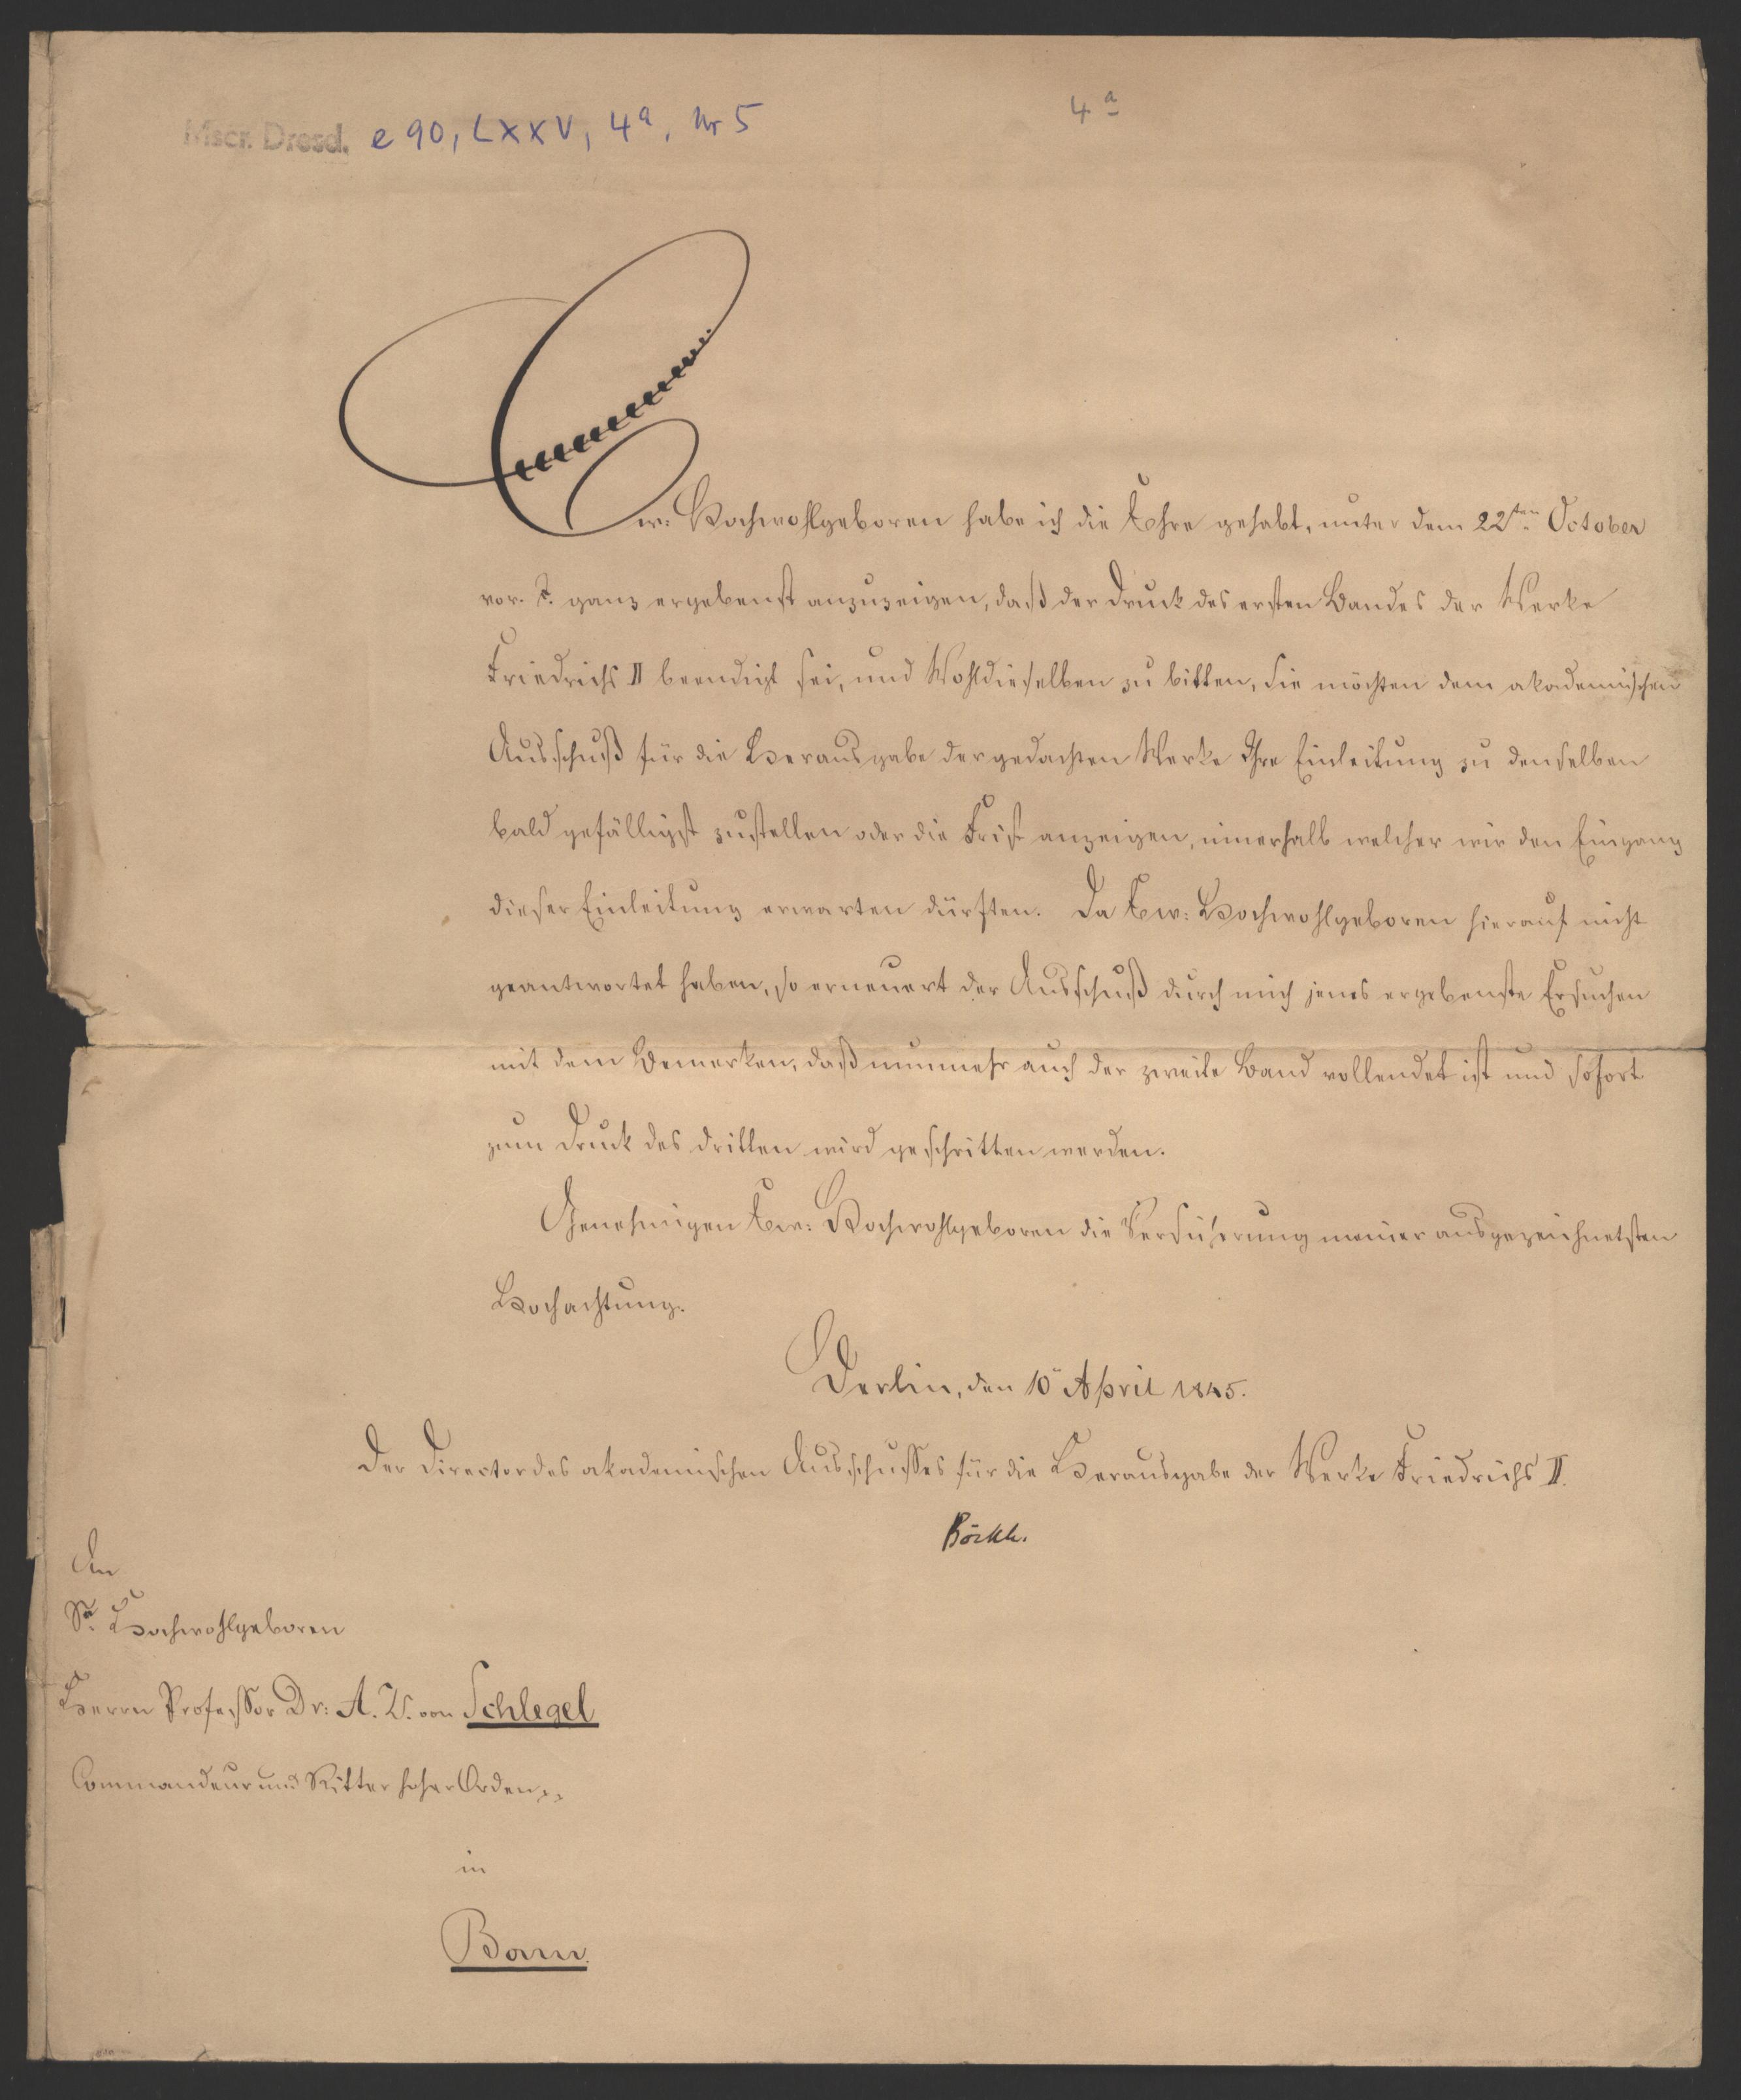 Mscr. Dresd. e 90, LXXV, 4a, Nr 5
4a
Ew: Hochwohlgeboren habe ich die Ehre gehabt, unter dem 22ten October
vor. J. ganz ergebenst anzuzeigen, daß der Druck des ersten Bandes der Werke
Friedrichs II beendigt sei, und Wohldieselben zu bitten, Sie möchten dem akademischen
Ausschuß für die Herausgabe der gedachten Werke Ihre Einleitung zu denselben
bald gefälligst zustellen oder die Frist anzeigen, innerhalb welcher wir den Eingang
dieser Einleitung erwarten dürften. Da Ew: Hochwohlgeboren hierauf nicht
geantwortet haben, so erneuert der Ausschuß durch mich jenes ergebenste Ersuchen
mit dem Bemerken, daß nunmehr auch der zweite Band vollendet ist und sofort
zum Druck des dritten wird geschritten werden.
Genehmigen Ew: Hochwohlgeboren die Versicherung meiner ausgezeichnetsten
Hochachtung.
Berlin, den 10n April 1845.
Der Director des akademischen Ausschusses für die Herausgabe der Werke Friedrichs II.
Böckh.
An
Sr. Hochwohlgeboren
Herrn Professor Dr: A. W. von Schlegel
Commandeur und Ritter hoher Orden
in
Bonn.